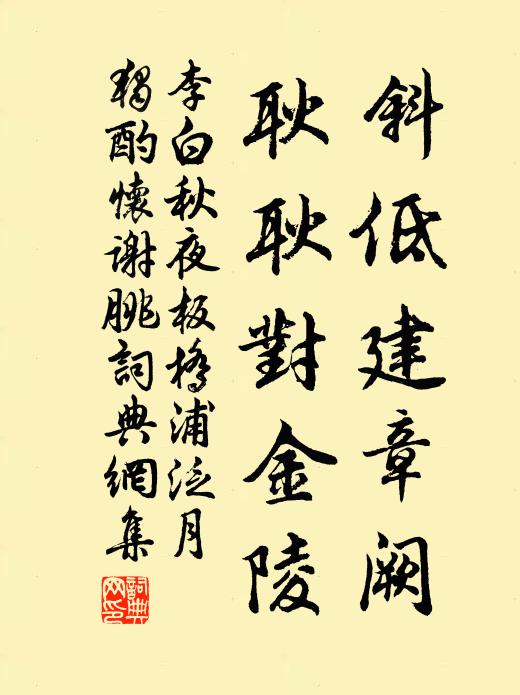 斜低建章阙
耿耿對金陵
李白秋夜板橋浦泛月
獨酌懷谢朓詞典網集
詞典網印